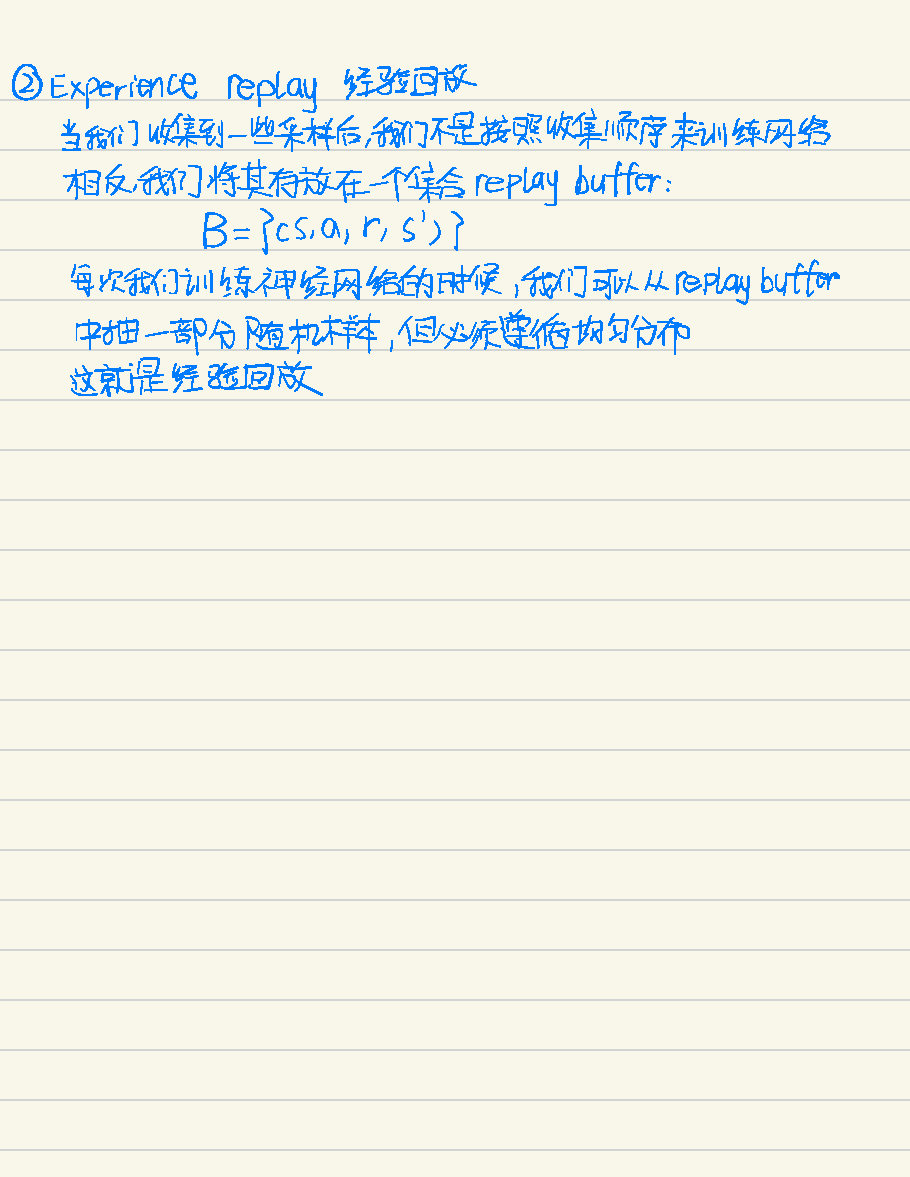 ② Experience replay 经验回放
当我们收集到一些采样后,我们不是按照收集顺序来训练网络
相反,我们将其存放在一个集合 replay buffer:
B={(s,a,r,s')}
每次我们训练神经网络的时候,我们可以从replay buffer
中抽一部分随机样本,但必须遵循均匀分布
这就是经验回放